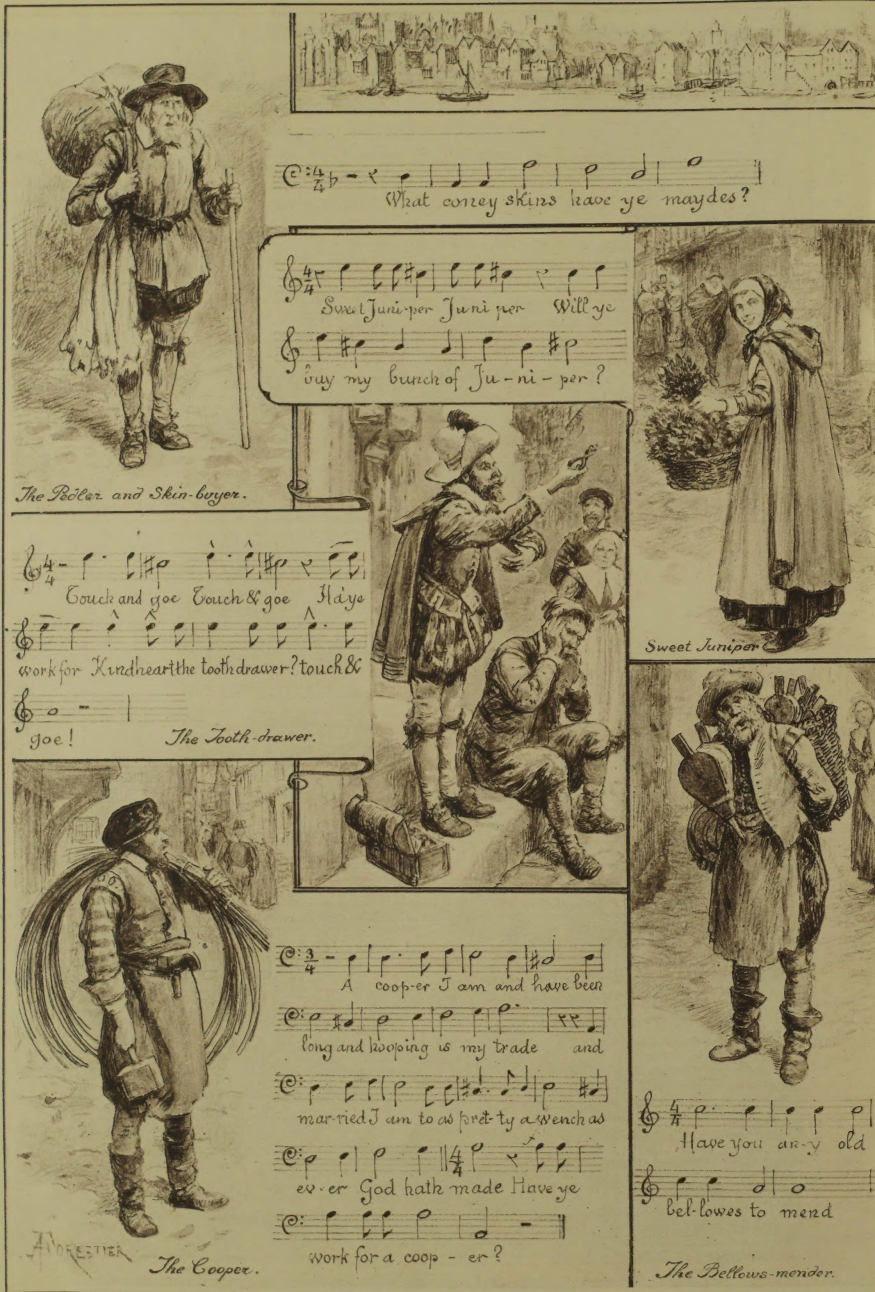 What coney skins have ye maydes?
Sweet Juni-per Juni per Will ye
buy my bunch of Ju-ni-per?
The Pedler and Skin-buyer.
Touch and goe Touch & goe Ha'ye
work for Kindheart the tooth drawer? touch &
goe!
The Tooth-drawer.
Sweet Juniper
A coop-er I am and have been
long and hooping is my trade and
mar-ried I am to as pret-ty a wench as
ev-er God hath made Have ye
work for a coop-er?
A FORESTIER
The Cooper.
Have you an-y old
bel-lowes to mend
The Bellows-mender.